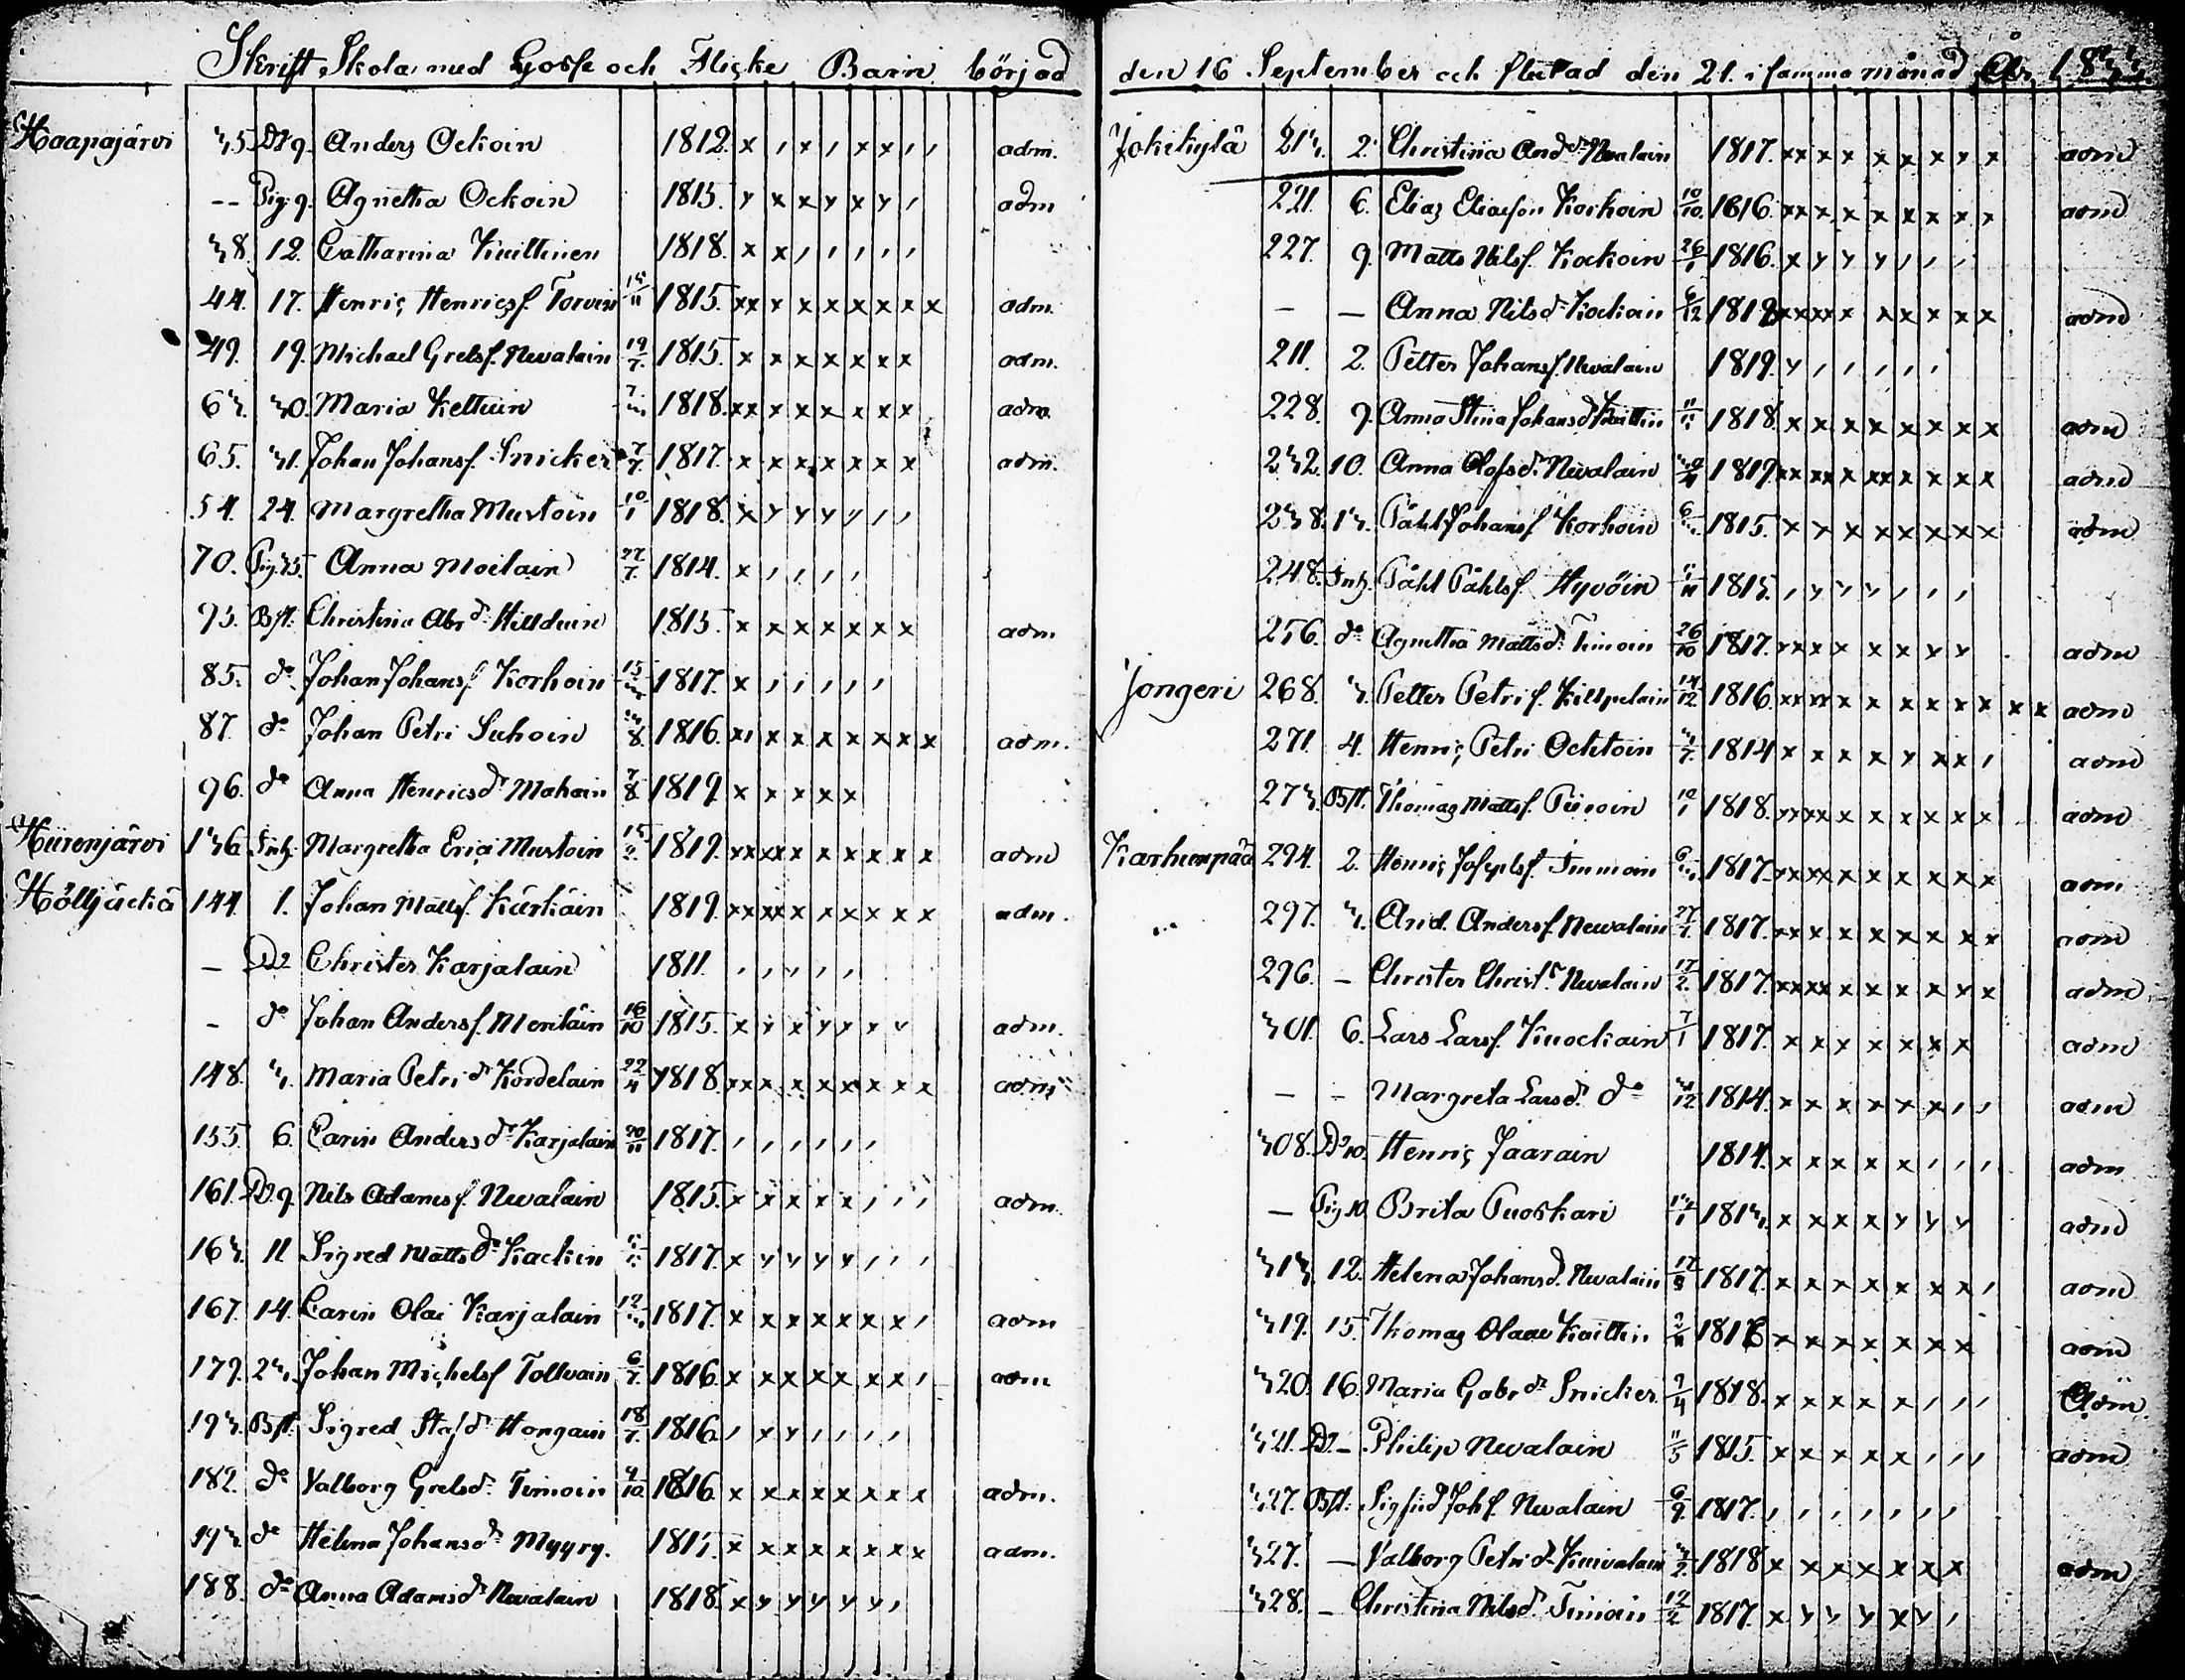 Skrift Skola med Gosse och Flicke Barn börjad
Haapajärvi 35. Dr. 9. Anders Ockoin 1812. x , x , x x , , adm.
-- Pig. 9. Agnetha Ockoin 1815. y x x y x y , adm
38. 12. Catharina Kuittinen 1818. x x , , , , ,
44. 17. Henric Henricsf. Torvin 15/11 1815. xx x x x x x x x adm.
49. 19. Michael Grelsf. Nevalain 19/7. 1815. x x x x x x x adm.
63. 30. Maria Kettuin 1818. xx x x x x x x adm.
65. 31. Johan Johansf. Snicker 7/7. 1817. x x x x x x x adm.
54. 24. Margretha Mustoin 10/1 1818. x y y y y , ,
70. Pig. 35. Anna Moilain 27/7. 1814. x , , , ,
95. Bst. Christina Abr. dr. Hilduin 1815. x x x x x x x adm
85. do Johan Johansf. Korhoin 1817. x , , , , ,
87. do Johan Petri Suhoin 1816. x, x x x x x x x adm.
96. do Anna Henricsdr. Mohain 7/8. 1819. x x x x x
Hiirenjärvi 136. Inh. Margretha Erici Mustoin 15/2. 1819. xx xx x x x x x x adm
Höltjäckä 144. 1. Johan Mattsf. Kärkäin 1819. xx xx x x x x x x adm.
– Dr. Christer Karjalain 1811. , , , , ,
– do Johan Andersf. Moniläin 16/10 1815. x y x y x x y adm.
148. 3. Maria Petri dr. Kordelain 22/4 1818. xx x x x x x x x adm
155. 6. Carin Anders dr. Karjalain 20/11 1817. , , , , , ,
161. D. 9. Nils Adamsf. Nevalain 1815. x x x x x , , , adm.
163. 11 Sigred Matts dr. Kackin 1817. x y y y y , , ,
167. 14. Carin Olai Karjalain 1817. x x x x x x x , adm
179. 23. Johan Michelsf Tolluain 6/7. 1816. x x x x x x x , adm
193. Bst. Sigred Staf dr. Hongain 18/7. 1816. , x y , , , ,
182. do Valborg Grelsdr. Timoin 4/10. 1816. x x x x x x x x adm.
193 do Helena Johansdr. Myyry. 1815. x x x x x x x x adm.
188. do Anna Adamsdr. Nevalain 1818. x y y y y y ,
den 16 September och slutad den 21. i samma månad År 1833
Jokikylä 213. 2. Christina And.dr. Nevalain 1817. xx x x x x x x x adm
221. 6. Elias Eliasson Korhoin 10/10. 1816. xx x x x x x x x adm
227. 9. Matts Nilsf. Kockoin 26/1 1816. x y y y , , ,
– – Anna Nilsdr. Kockoin 6/12 1818. xx xx x x x x x x adm
211. 2. Petter Johansf. Nevalain 1819. y , , , , ,
228. 9. Anna Stina Johansdr. Kuittin 1818. x x x x x x x x adm
232. 10. Anna Olofsdr. Nevalain 1819. xx xx x xx x x x x adm
238. 13. Påhl Johansf Korhoin 1815. x x x x x x x x adm
248. Inh. Påhl Påhlsf. Hyvöin 1815. , y y y , , ,
256. do Agnetha Mattsdr. Timoin 26/10 1817. xxx x x x y y adm
Jongeri 268. 3. Petter Petri f. Kilpelain 14/12 1816. xx xx x x x x x x x x adm
271. 4. Henric Petri Ochtoin 1814 x x x x y xx , adm
273. Bst. Thomas Mattsf. Piiroin 1818. xx xx x x x x x x adm
Karhunpää 294. 2. Henric Josephsf. Immoin 1817. xx xx x x x x x x adm
297. 3. And. Andersf. Nevalain 27/7. 1817. xx x x x x x x x adm
296. – Christer Christ.s Nevalain 17/2. 1817. xx xx x x x x y x adm
301. 6. Lars Larsf. Kuockain 7/1 1817. x x x x x x x adm
– – Margreta Larsdr. do 1814. x x x x x x , , adm
308. Dr. 10. Henric Jaarain 1814. x x x x x , , , adm
– Pig. 10. Brita Puoskari 1813. x x x x y y y adm
313. 12. Helena Johansd. Nevalain 17/8 1817. x x x x x x x , adm
319. 15. Thomas Olaui Kuittin 1816 x x x x x x x adm
320. 16. Maria Gabr.dr Snicker 9/4 1818. x x x x x , , , Adm
321. Dr. – Philip Nevalain 11/5 1815. x x x x x , , , adm
327. Bst. Sigfrid Joh.f. Nevalain 6/9. 1817. , , , , , , ,
327. – Valborg Petri dr. Kuivalain 1818 x x x x x x x adm
328. – Christina Nilsdr. Timoin 12/2 1817. x y y y x y ,